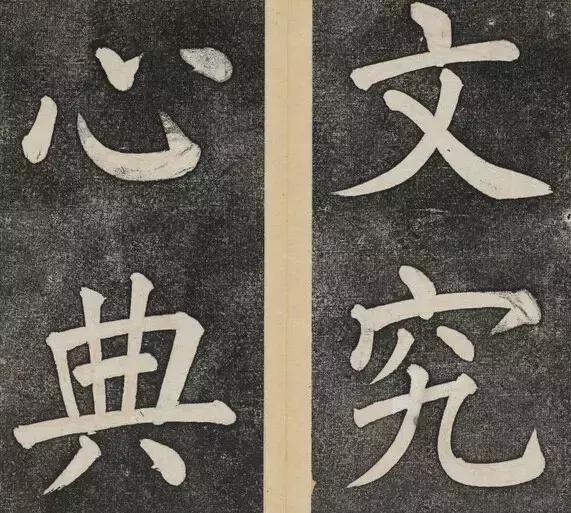 文究
心典